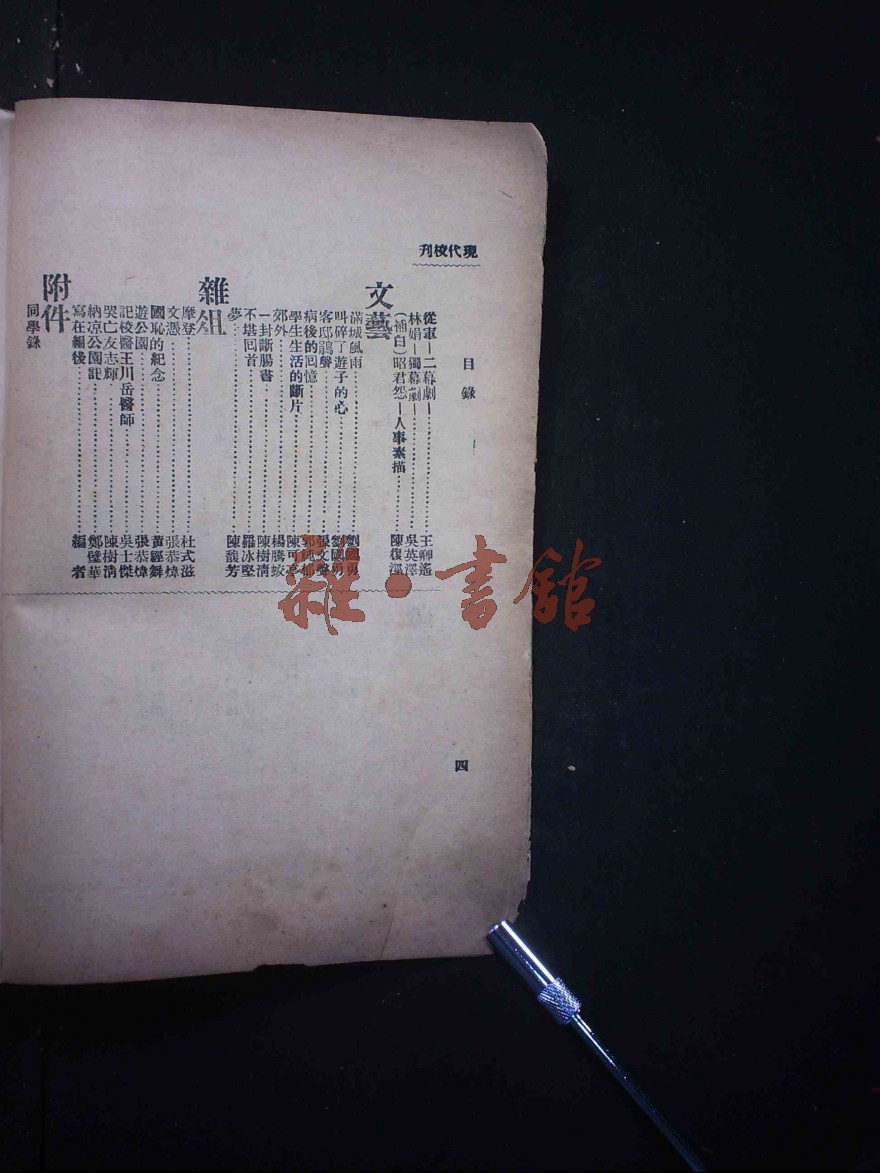 現代校刊
目錄
四
從軍—二幕劇—……王卿遙
林娟—獨幕劇—……吳英澤
(補白)昭君怨—人事素描……陳復涇
文藝
滿城風雨……劉國勇
叫碎了遊子的心……劉國勇
客邸鵑聲……張文聲
病後的回憶……郭
學生生活的斷片……陳可亮
郊外……楊騰蛟
一封斷腸書……陳樹清
不堪回首……羅冰堅
夢……陳馥芳
雜俎
摩登……杜式滋
文憑……張恭煒
國恥的紀念……黃經舞
遊公園……張恭煒
記校醫王川岳醫師……吳士傑
哭亡友志輝……陳樹清
納凉公園記……鄭璧華
寫在編後……編者
附件
同學錄
雜·書館